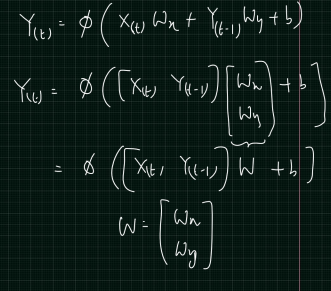 Y(t) = φ( X(t) Wx + Y(t-1) Wy + b)
Y(t) = φ( [X(t) Y(t-1)] [Wx Wy] + b ]
= φ ( [X(t, Y(t-1)] W + b ]
W = [Wx
Wy]